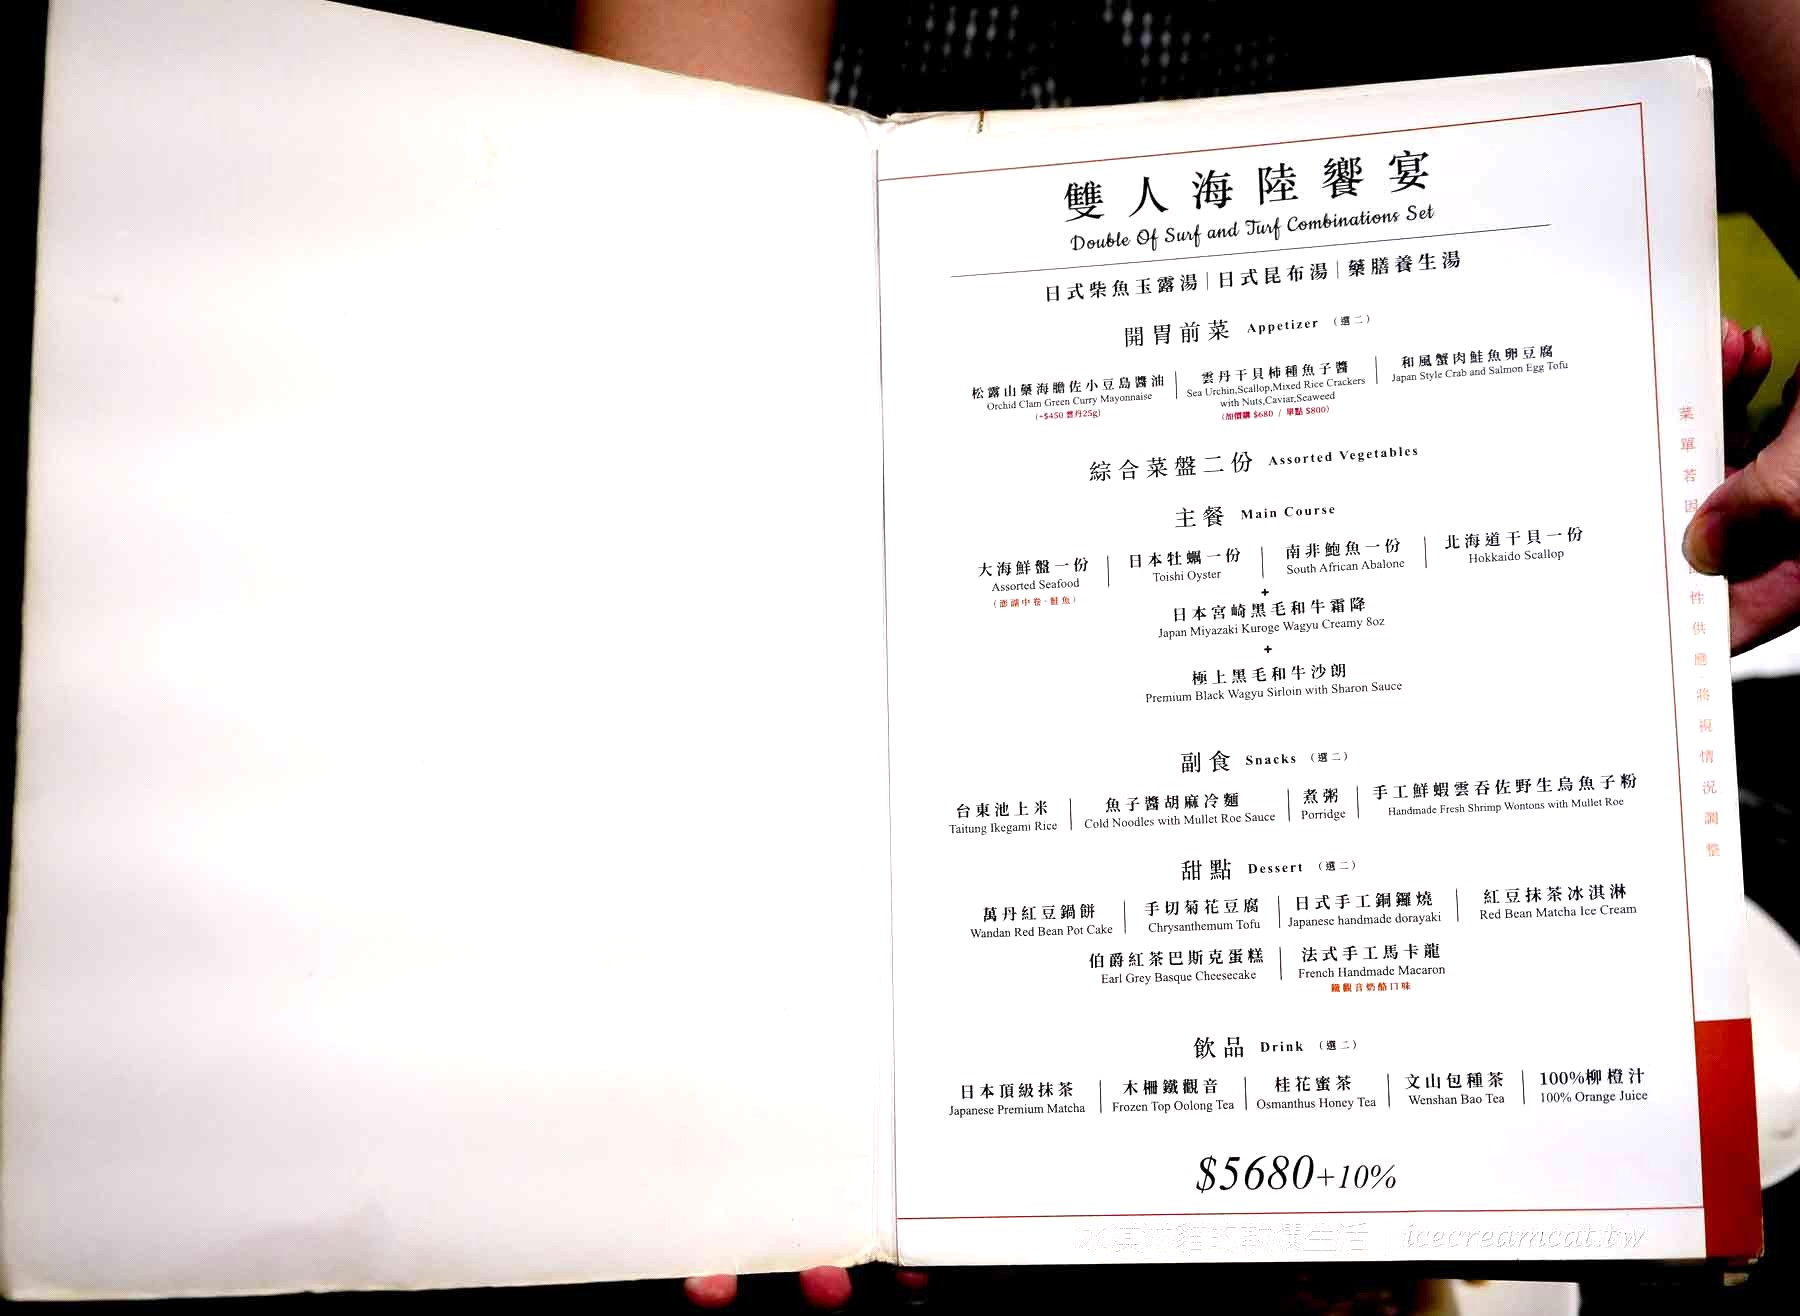 雙人海陸饗宴
Double Of Surf and Turf Combinations Set
日式柴魚玉露湯|日式昆布湯|藥膳養生湯
開胃前菜 Appetizer （選二）
松露山藥海膽佐小豆島醬油
Orchid Clam Green Curry Mayonnaise
(+$450 雲丹25g)
雲丹干貝柿種魚子醬
Sea Urchin,Scallop,Mixed Rice Crackers
with Nuts,Caviar,Seaweed
(加價購 $680 / 單點 $800)
和風蟹肉鮭魚卵豆腐
Japan Style Crab and Salmon Egg Tofu
綜合菜盤二份 Assorted Vegetables
主餐 Main Course
大海鮮盤一份
Assorted Seafood
(澎湖中卷·鮭魚)
日本牡蠣一份
Toishi Oyster
南非鮑魚一份
South African Abalone
北海道干貝一份
Hokkaido Scallop
+
日本宮崎黑毛和牛霜降
Japan Miyazaki Kuroge Wagyu Creamy 8oz
+
極上黑毛和牛沙朗
Premium Black Wagyu Sirloin with Sharon Sauce
副食 Snacks （選二）
台東池上米
Taitung Ikegami Rice
魚子醬胡麻冷麵
Cold Noodles with Mullet Roe Sauce
煮粥
Porridge
手工鮮蝦雲吞佐野生烏魚子粉
Handmade Fresh Shrimp Wontons with Mullet Roe
甜點 Dessert （選二）
萬丹紅豆鍋餅
Wandan Red Bean Pot Cake
手切菊花豆腐
Chrysanthemum Tofu
日式手工銅鑼燒
Japanese handmade dorayaki
紅豆抹茶冰淇淋
Red Bean Matcha Ice Cream
伯爵紅茶巴斯克蛋糕
Earl Grey Basque Cheesecake
法式手工馬卡龍
French Handmade Macaron
鐵觀音奶酪口味
飲品 Drink （選二）
日本頂級抹茶
Japanese Premium Matcha
木柵鐵觀音
Frozen Top Oolong Tea
桂花蜜茶
Osmanthus Honey Tea
文山包種茶
Wenshan Bao Tea
100%柳橙汁
100% Orange Juice
$5680+10%
菜單若因
性供應,將視情況調整
icecreamcat.tw